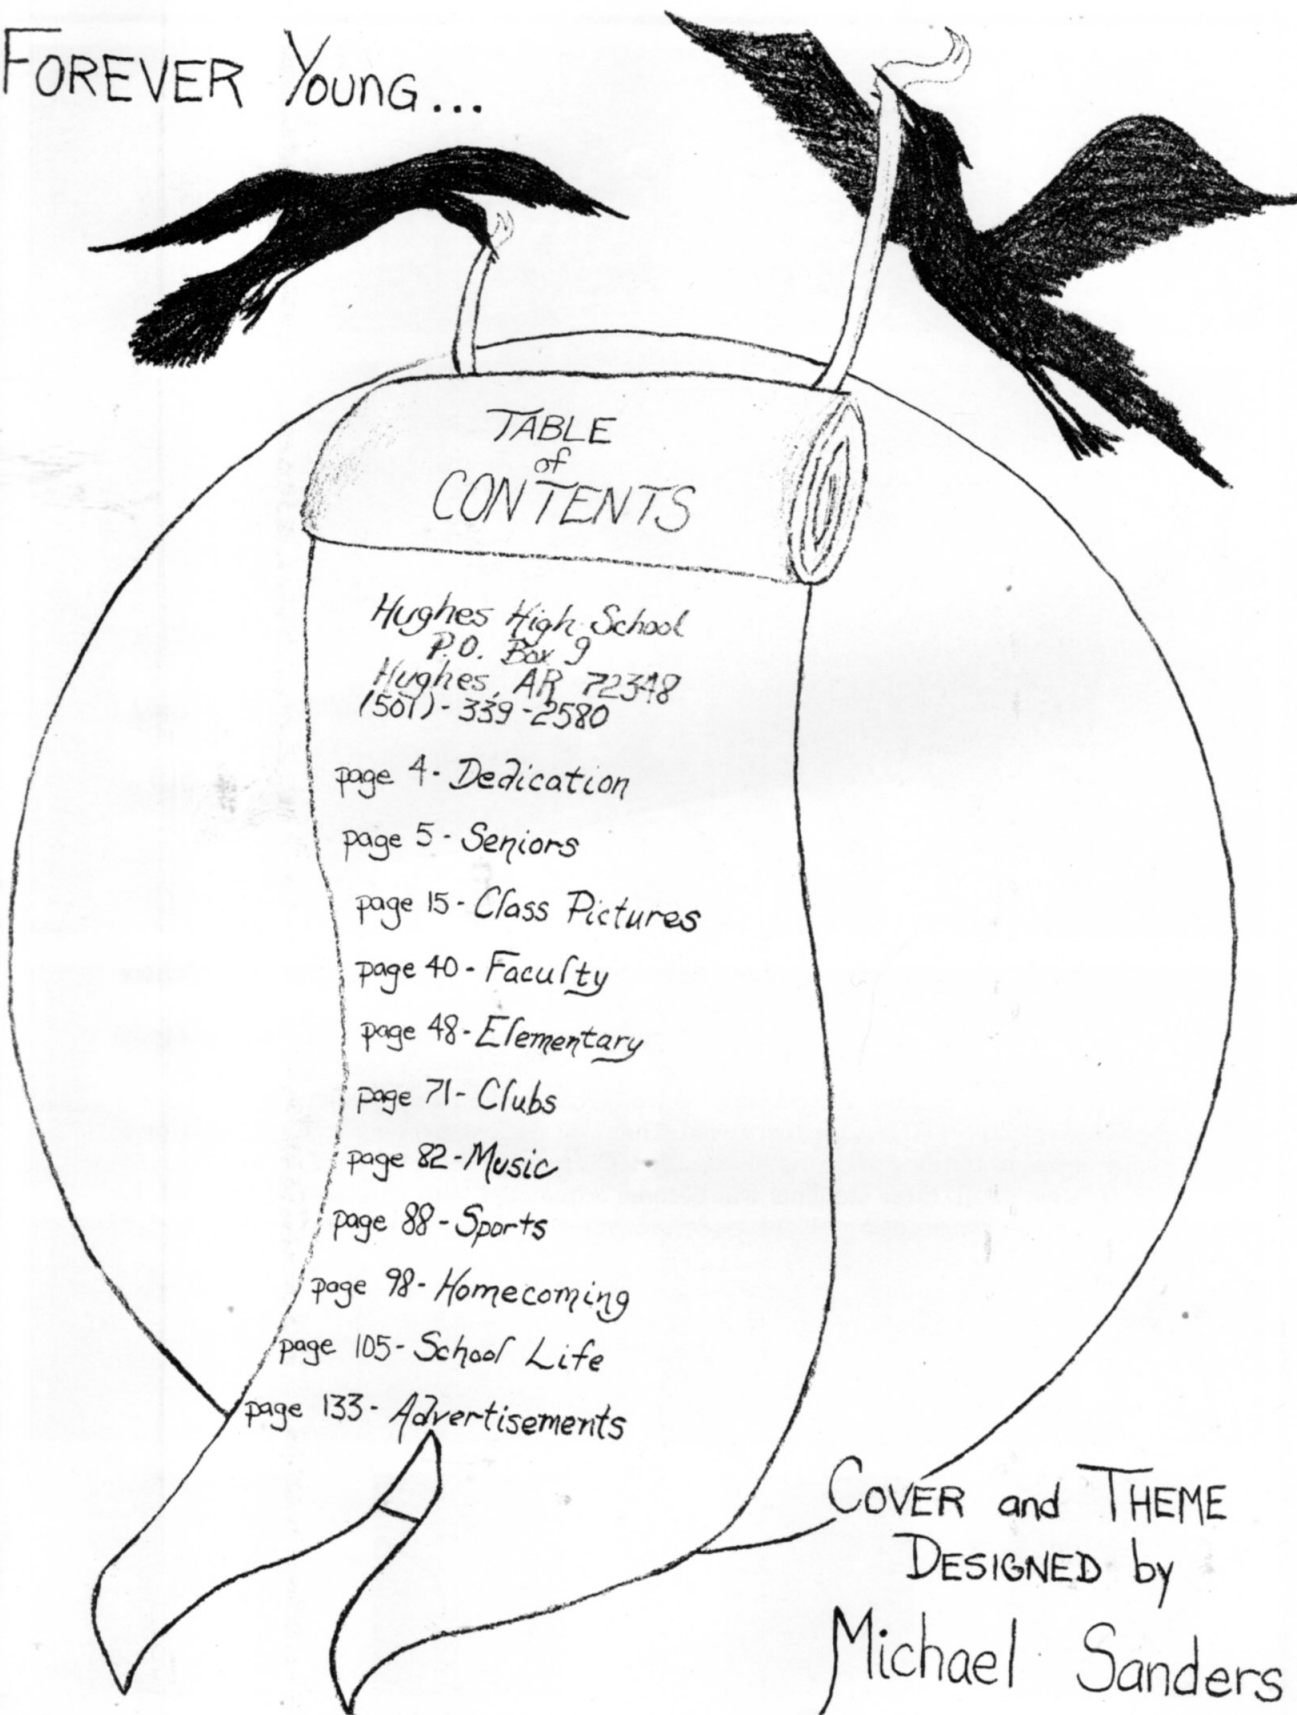 FOREVER YOUNG...
TABLE
of
CONTENTS
Hughes High School
P.O. Box 9
Hughes, AR 72348
(501)-339-2580
page 4- Dedication
page 5- Seniors
page 15- Class Pictures
page 40- Faculty
page 48- Elementary
page 71- Clubs
page 82- Music
page 88- Sports
page 98- Homecoming
page 105- School Life
page 133- Advertisements
COVER and THEME
DESIGNED by
Michael Sanders